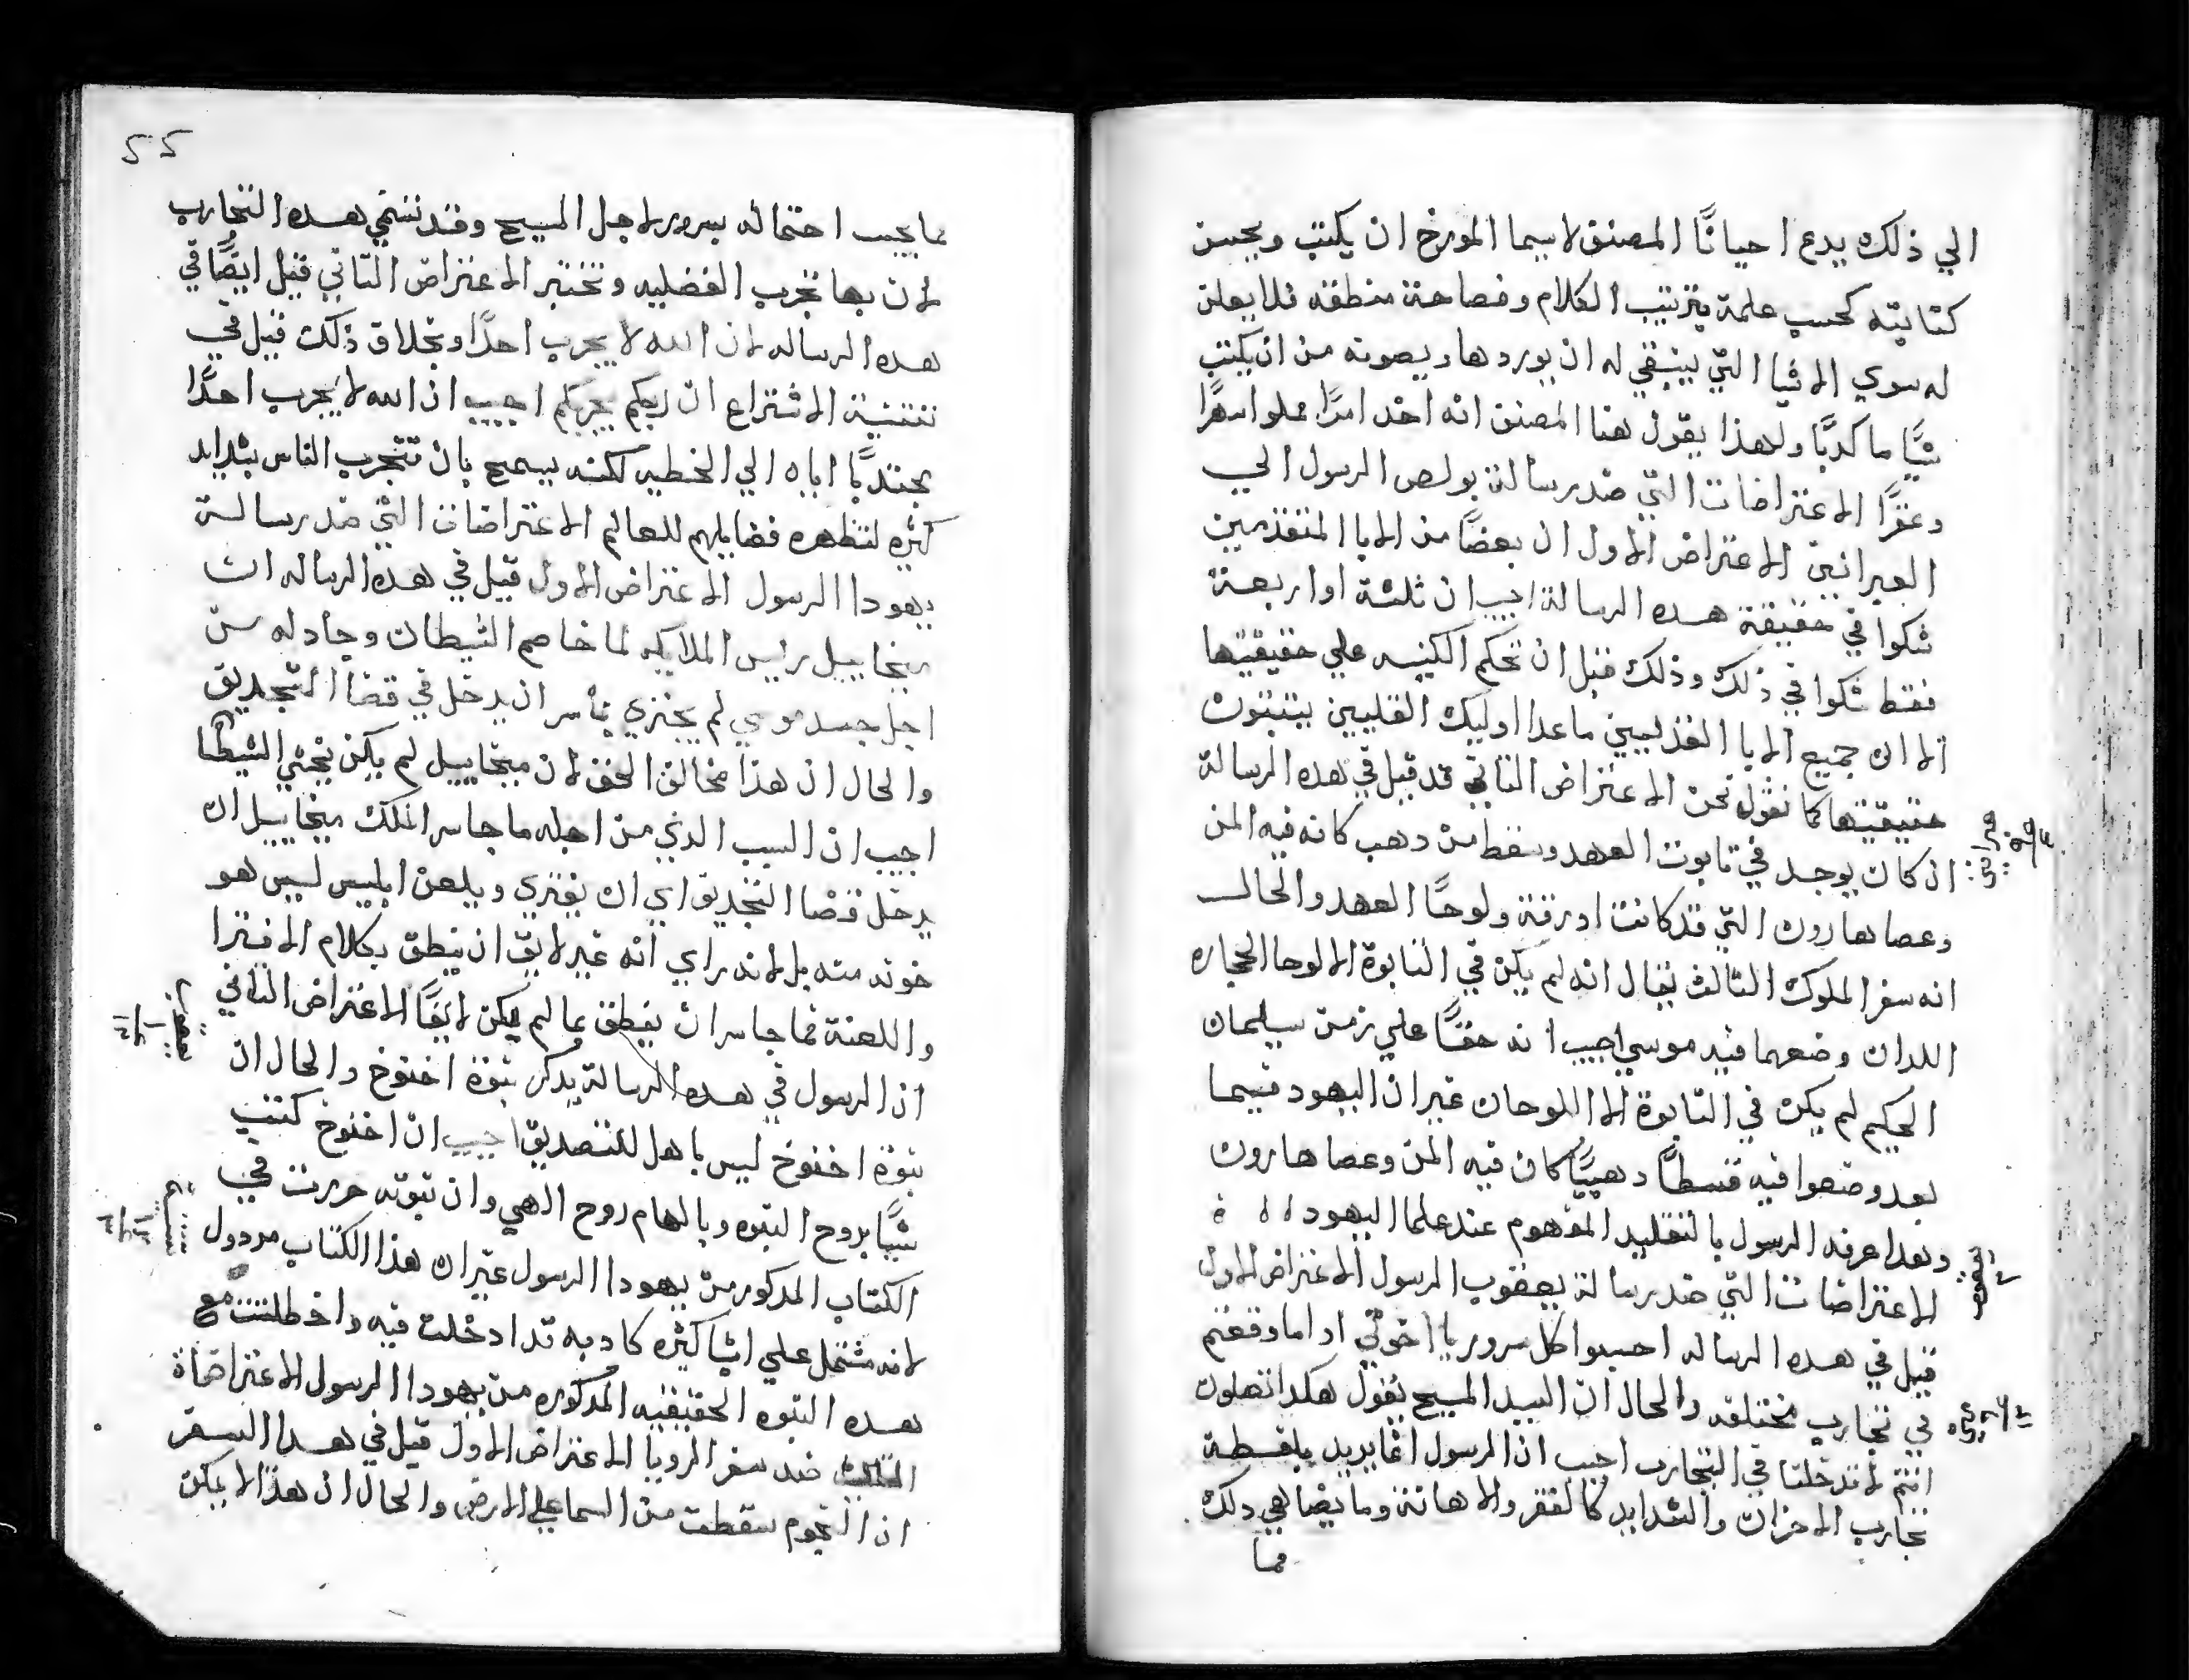 الي ذلك يدع احيانًا المصنف لاسيما المورخ ان يكتب ويحسن
كتابته كحسب علمه بترتيب الكلام وفصاحة منطقه فلا يعلن
له سوي الاشيا التي ينبغي له ان يوردها ويصونه من ان يكتب
شيًا ما كدبًا ولهذا يقول هنا المصنف انه اخد امرًا مملوا سهرًا
وعرقًا الاعتراضات التي ضد رسالة بولص الرسول الي
العبرانيين الاعتراض الاول ان بعضًا من الابا المتقدمين
شكوا في حقيقة هده الرسالة اجيب ان ثلثة او اربعة
فقط شكوا في ذلك وذلك قبل ان تحكم الكنيسه علي حقيقيتها
الا ان جميع الابا القديسين ماعدا اوليك القليين يبتنون
حقيقيتها كما نقول نحن الاعتراض الثاني قد قيل في هده الرسالة
ان كان يوجد في تابوت العهد وسقط من دهب كانه فيه المن
وعصا هارون التي قد كانت اورقة ولوحًا العهد والحال
انه سفر الملوك الثالث يقال انه لم يكن في التابوة الا لوحا الحجاره
اللدان وضعهما فيه موسي اجيب انه حقًا علي زمن سليمان
الحكيم لم يكن في التابوة الا اللوحان غير ان اليهود فيما
بعد وضعوا فيه قسطًا دهبيًا كان فيه المن وعصا هارون
وهدا عرفه الرسول بالتقليد المفهوم عند علما اليهود
الاعتراضات التي ضد رسالة يعقوب الرسول الاعتراض الاول
قيل في هده الرساله احسبوا كل سرور يا اخوتي ادا ما وقعتم
في تجارب مختلفه والحال ان السيد المسيح يقول هكدا تصلون
انتم لا تدخلنا في التجارب اجيب ان الرسول انما يريد بلفظة
تجارب الاحزان والشدايد كالفقر والاهانة وما يضاهي دلك
مما
55
مما يجب احتماله بسرور لاجل المسيح وقد تسمي هده التجارب
لان بها تجرب الفضليه وتختبر الاعتراض التاني قيل ايضًا في
هده الرساله ان الله لا يجرب احدًا وبخلاف ذلك قيل في
تتنية الاشتراع ان ربكم يجربكم اجيب ان الله لا يجرب احدًا
مجتدبًا اياه الي الخطيه لكنه يسمح بان تتجرب الناس بشدايد
كثيره لتظهره فضايلهم للعالم الاعتراضات التي ضد رسالة
يهودا الرسول الاعتراض الاول قيل في هده الرساله ان
ميخاييل رايس الملايكه لما خاصم الشيطان وجادله من
اجل جسد موسي لم يجتري يأسر ان يدخل في قضا التجديق
والحال ان هذا مخالف الحق لان ميخاييل لم يكن يخشي الشيطا
اجيب ان السبب الدي من اجله ما جاسر الملك ميخاييل ان
يدخل قضا التجديق اي ان يفتري ويلعن ابليس ليس هو
خوفه منه بل لانه راي انه غير لايق ان ينطق بكلام الافترا
واللعنة فما جاسر ان ينطق بما لم يكن لايقًا الاعتراض التاني
ان الرسول في هده الرسالة يدكر نبوة اخنوخ والحال ان
نبوة اخنوخ ليس باهل للتصديق اجيب ان اخنوخ كتب
شيًا بروح النبوه وبالهام روح الهي وان نبوته حررت في
الكتاب المدكور من يهودا الرسول غير ان هذا الكتاب مردول
لانه مشتمل علي اشيا كثيره كادبه قد ادخلت فيه واخطلتت مع
هده النبوه الحقيقيه المدكوره من يهودا الرسول الاعتراضاة
ضد سفر الرويا الاعتراض الاول قيل في هدا السفر
ان النجوم سقطت من السما علي الارض والحال ان هذا لا يمكن